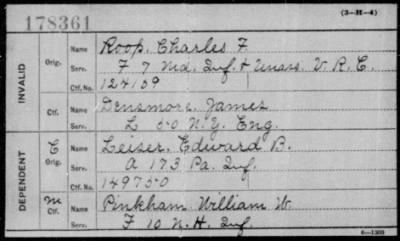 178361
(3—H—4)
INVALID
Orig.
Name Roop, Charles F
Serv. F 7 Md. Inf. & Unass. V. R. C.
Ctf. No. 124159
Ctf.
Name Densmore, James
Serv. L 50 N.Y. Eng.
DEPENDENT
C
Orig.
Name Leiser, Edward B.
Serv. A 173 Pa. Inf.
Ctf. No. 149750
M
Ctf.
Name Pinkham William W
Serv. F 10 N.H. Inf.